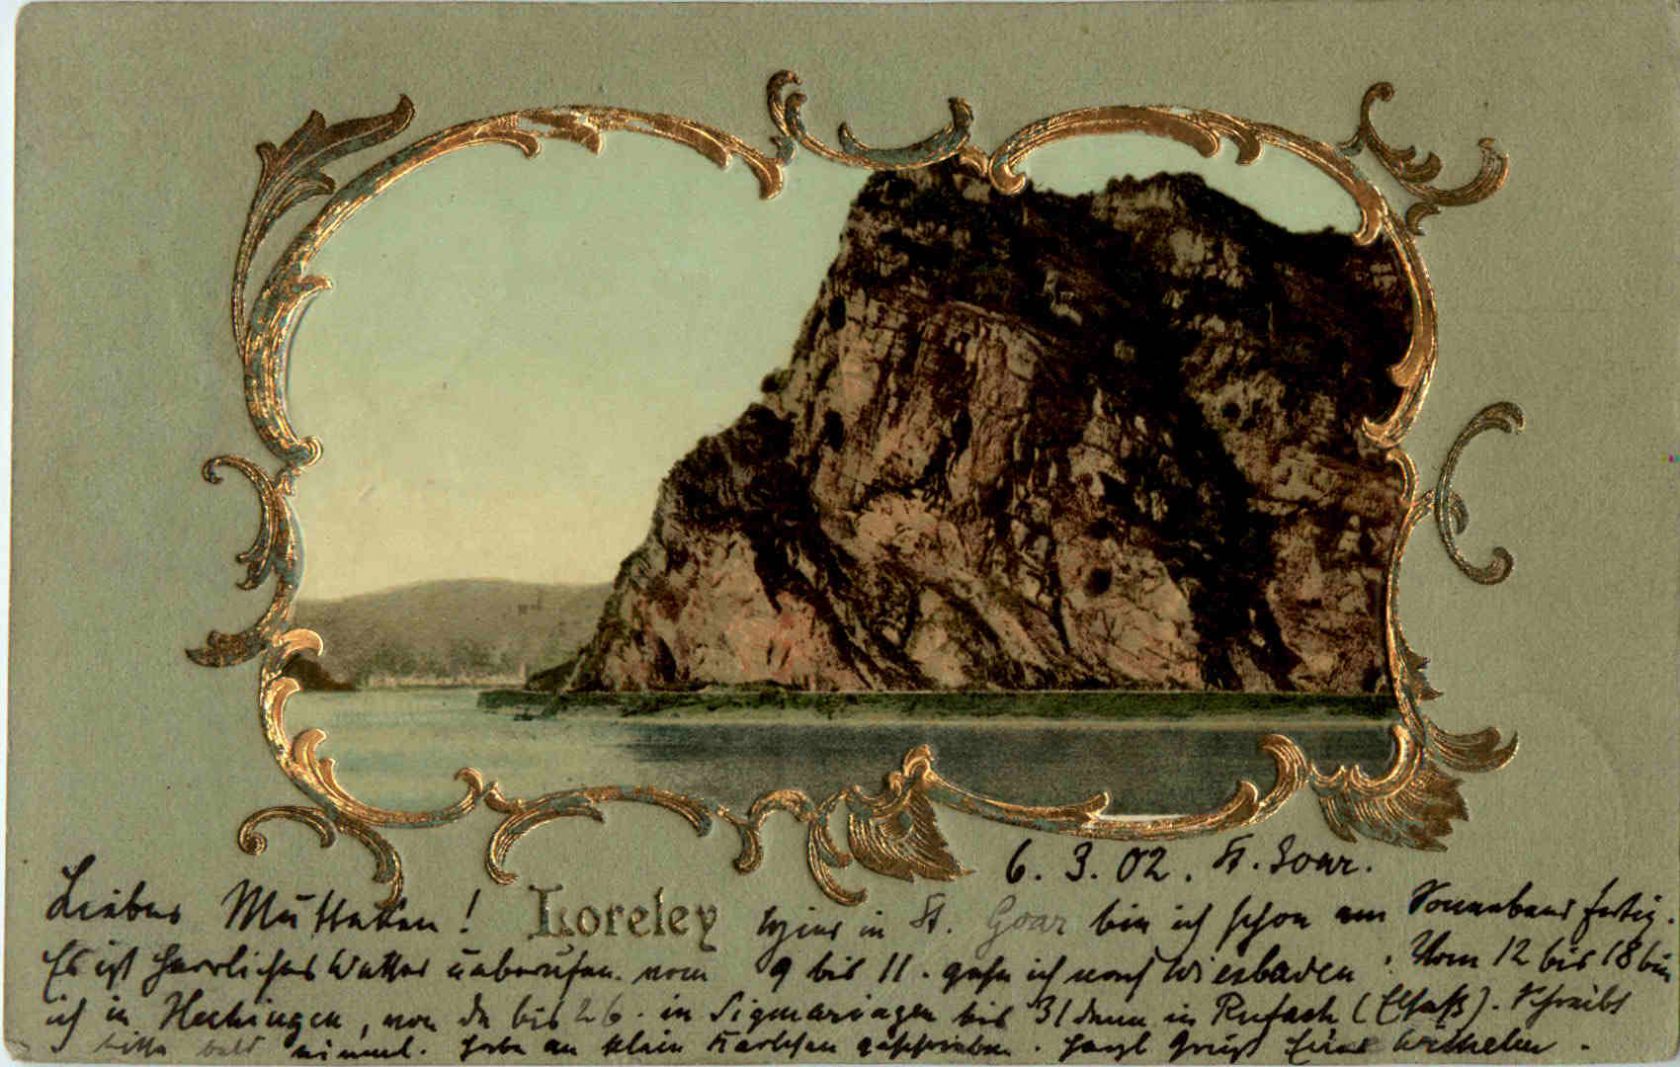 6. 3. 02. St. Goar.
Liebes Muttchen! Loreley Hier in St. Goar bin ich schon am Sonnabend fertig.
Es ist herrliches Wetter unberufen. vom 9 bis 11. gehe ich nach Wiesbaden. Vom 12 bis 18 bin
ich in Hechingen, von da bis 26. in Sigmaringen bis 31 dann in Rufach (Elsaß). Schreibt
bitte bald einmal. Habe an klein Karlchen geschrieben. Herzl Gruß Euer Wilhelm.